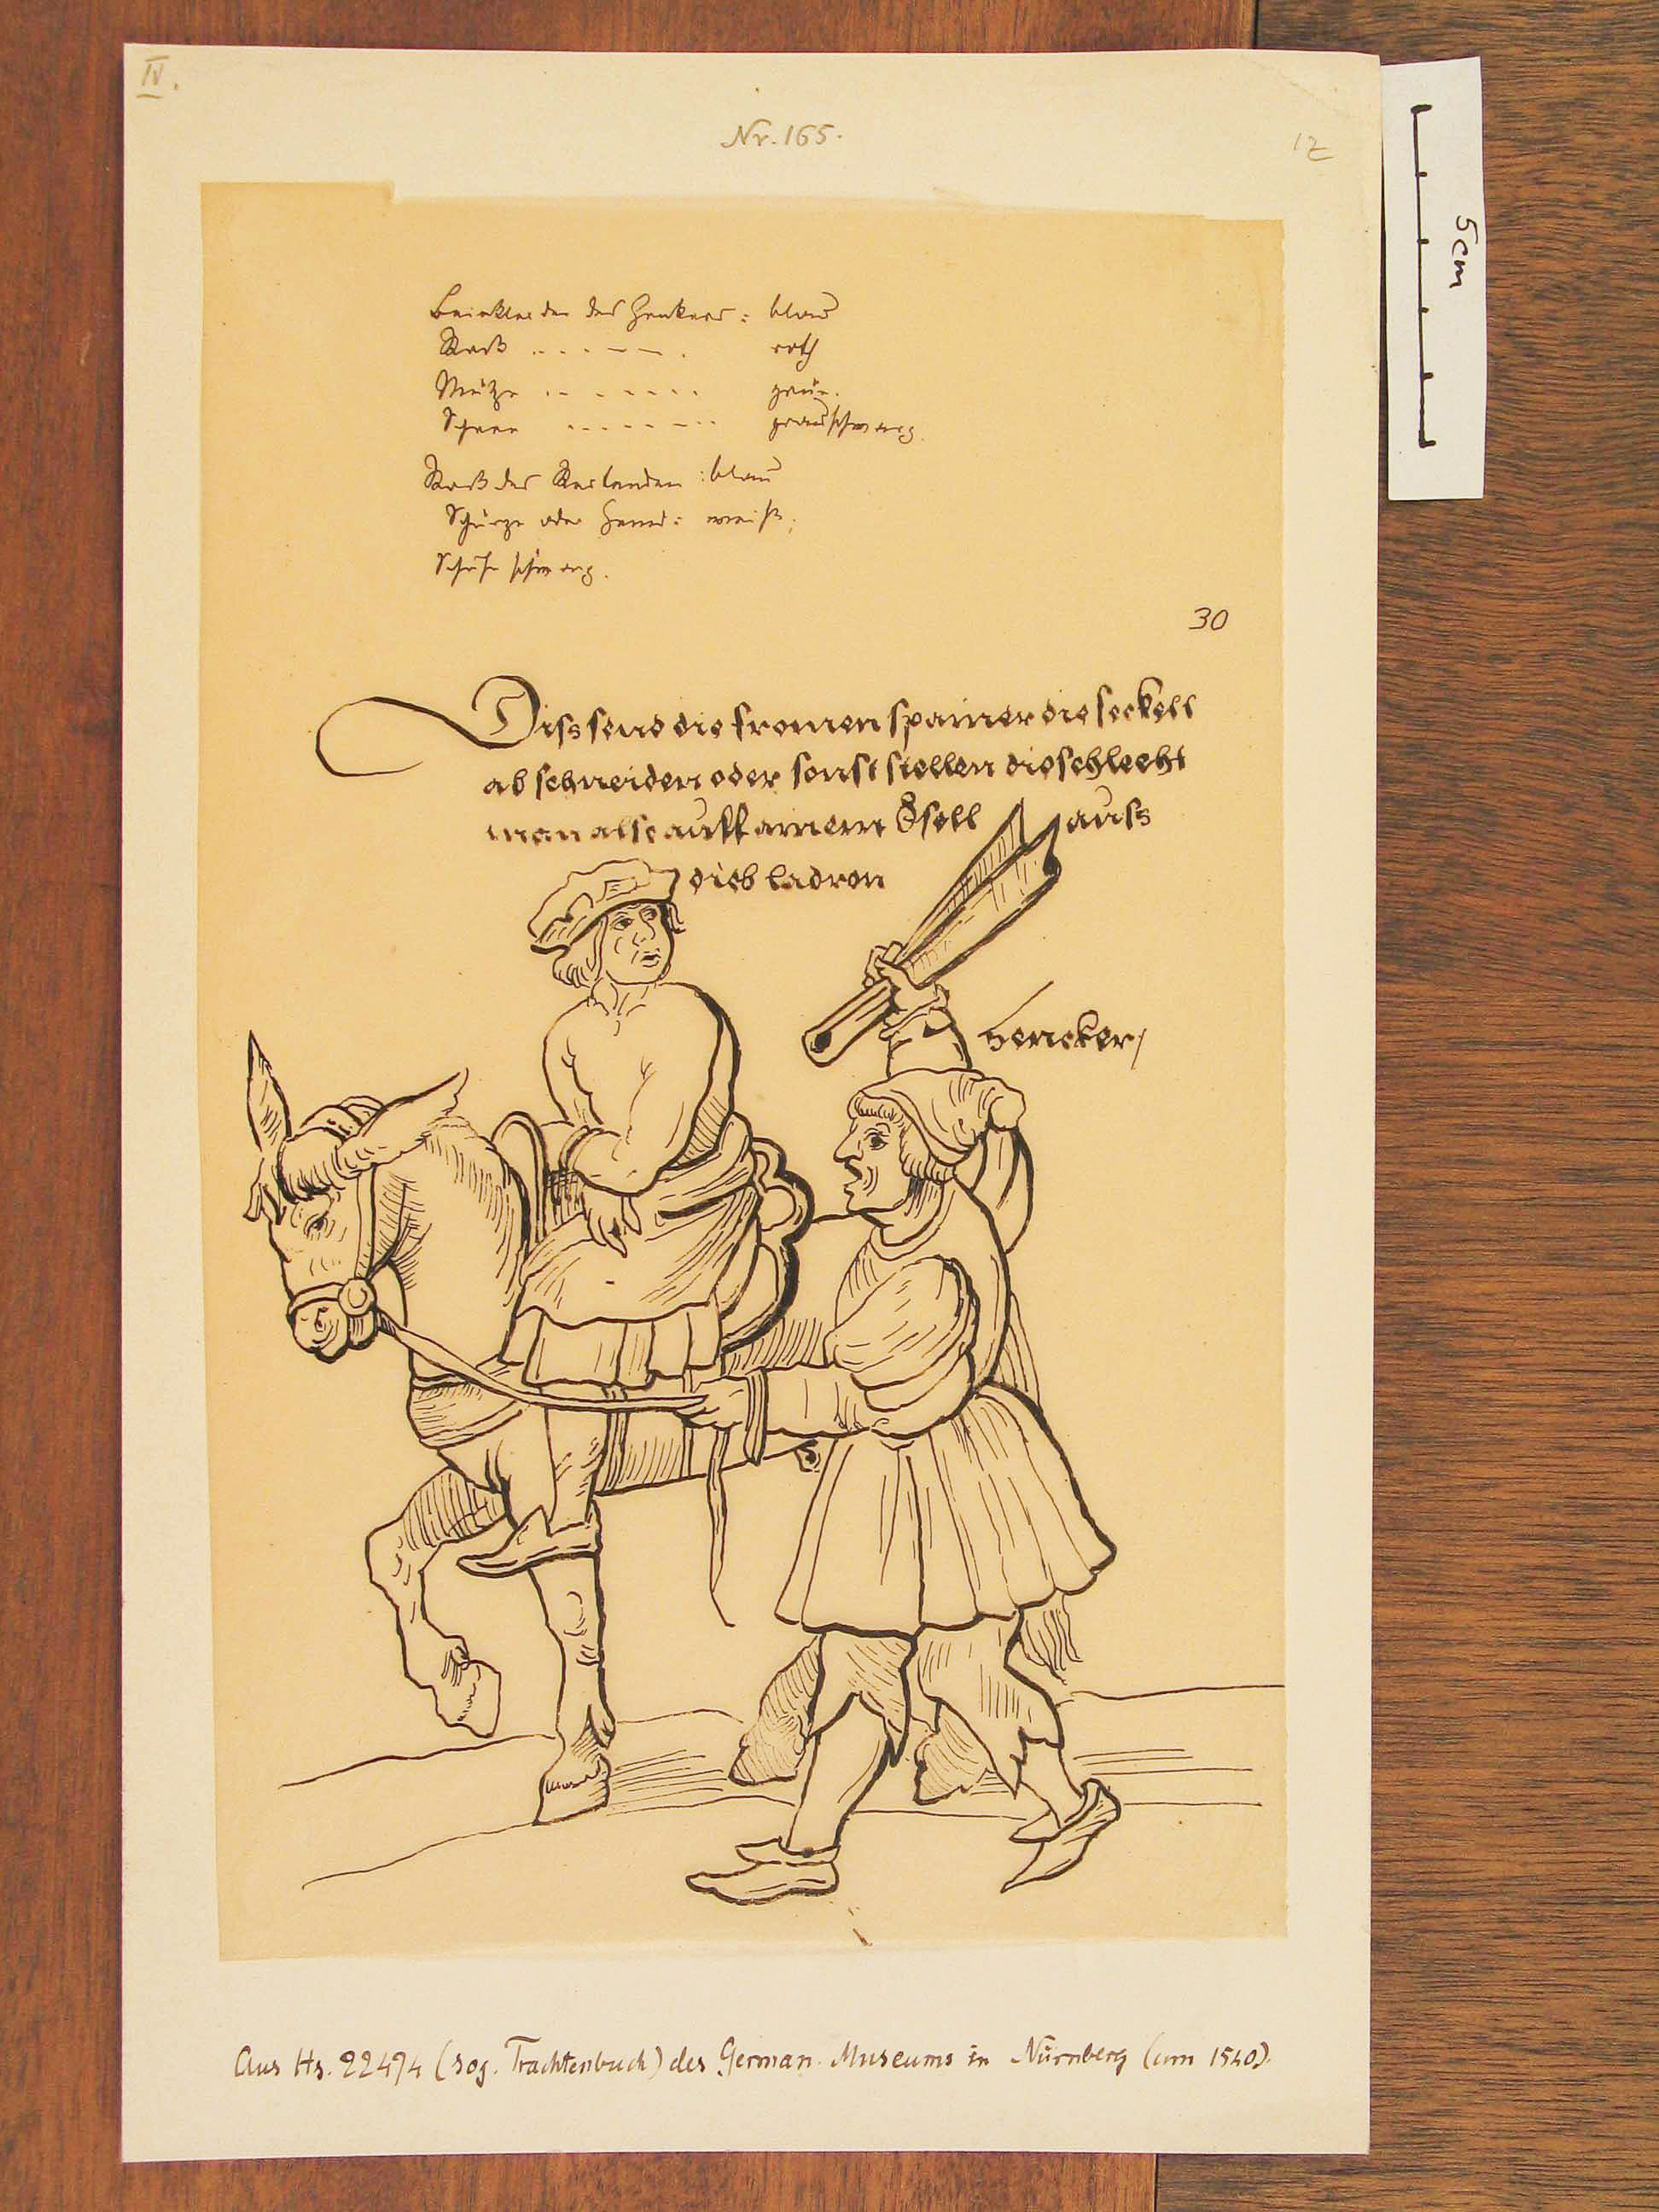 IV.
Nr. 165.
12
5cm
Beinkleider des Henkers: blau
Rock . . . . . . . roth
Mütze . . . . . . . grün.
Schuhe . . . . . . . grauschwarz.
Rock des : blau
Schürze oder Hemd: weiß;
Schuhe schwarz.
30
Diss send die fromen spainer die seckell
ab schneiden oder sonst stellen die schlecht
man alse auff ainem Esell auss
dieb ladron
hencker/
Aus Hs. 22474 (sog. Trachtenbuch) des German. Museums in Nürnberg (um 1540).